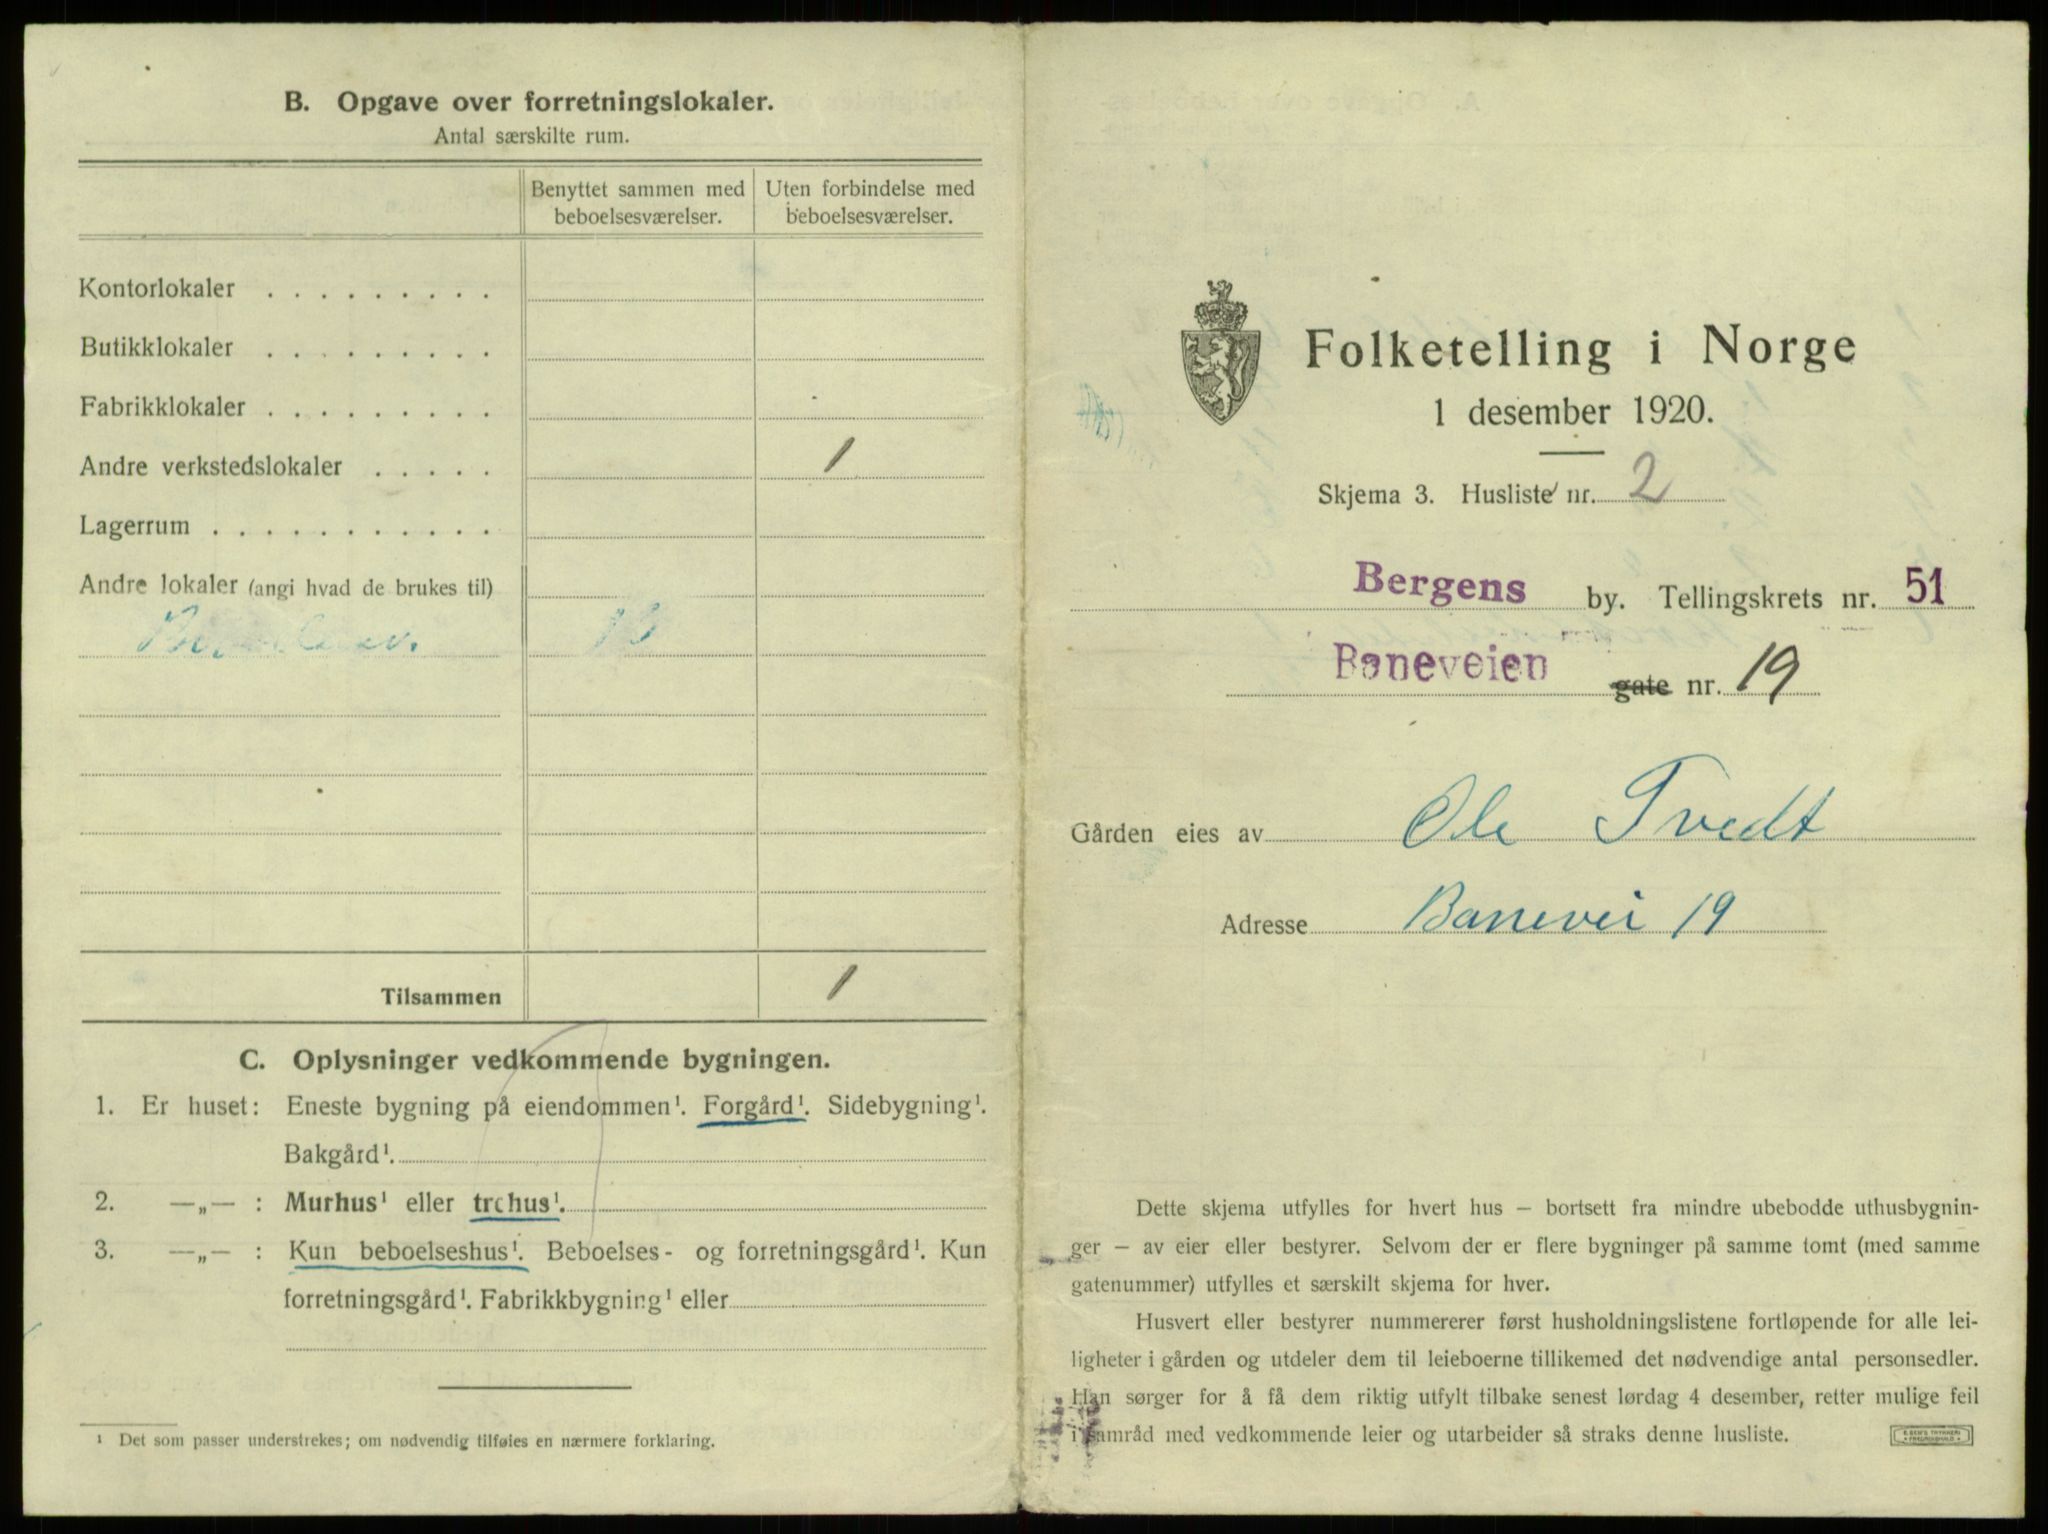 B. Opgave over forretningslokaler.
Antal særskilte rum.
Benyttet sammen med beboelsesværelser.
Uten forbindelse med beboelsesværelser.
Kontorlokaler . . . . . . . . .
Butikklokaler . . . . . . . . .
Fabrikklokaler . . . . . . . . .
Andre verkstedslokaler . . . . . 1
Lagerrum . . . . . . . . . . .
Andre lokaler (angi hvad de brukes til)
Tilsammen 1
C. Oplysninger vedkommende bygningen.
1. Er huset: Eneste bygning på eiendommen¹. Forgård¹. Sidebygning¹.
Bakgård¹.
2. —„— : Murhus¹ eller trehus¹.
3. —„— : Kun beboelseshus¹. Beboelses- og forretningsgård¹. Kun
forretningsgård¹. Fabrikkbygning¹ eller
¹ Det som passer understrekes; om nødvendig tilføies en nærmere forklaring.
Folketelling i Norge
1 desember 1920.
Skjema 3. Husliste nr. 2
Bergens by. Tellingskrets nr. 51
Baneveien gate nr. 19
Gården eies av Ole Tvedt
Adresse Banevei 19
Dette skjema utfylles for hvert hus — bortsett fra mindre ubebodde uthusbygnin-
ger — av eier eller bestyrer. Selvom der er flere bygninger på samme tomt (med samme
gatenummer) utfylles et særskilt skjema for hver.
Husvert eller bestyrer nummererer først husholdningslistene fortløpende for alle lei-
ligheter i gården og utdeler dem til leieboerne tillikemed det nødvendige antal personsedler.
Han sørger for å få dem riktig utfylt tilbake senest lørdag 4 desember, retter mulige feil
i samråd med vedkommende leier og utarbeider så straks denne husliste.